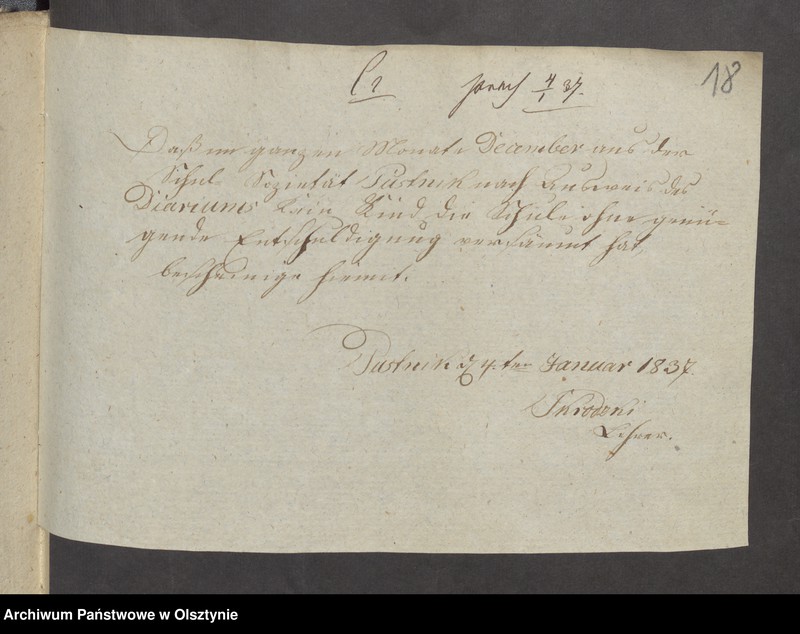 18
4/1 37.
Daß im ganzen Monat December aus der
Schul Sozietät Pustnik nach Ausweis des
Diariums kein Kind die Schule ohne genü-
gende Entschuldigung versäumt hat,
bescheinige hiemit.
Pustnik d 4ten Januar 1837.
Skrodzki
Lehrer.
Archiwum Państwowe w Olsztynie